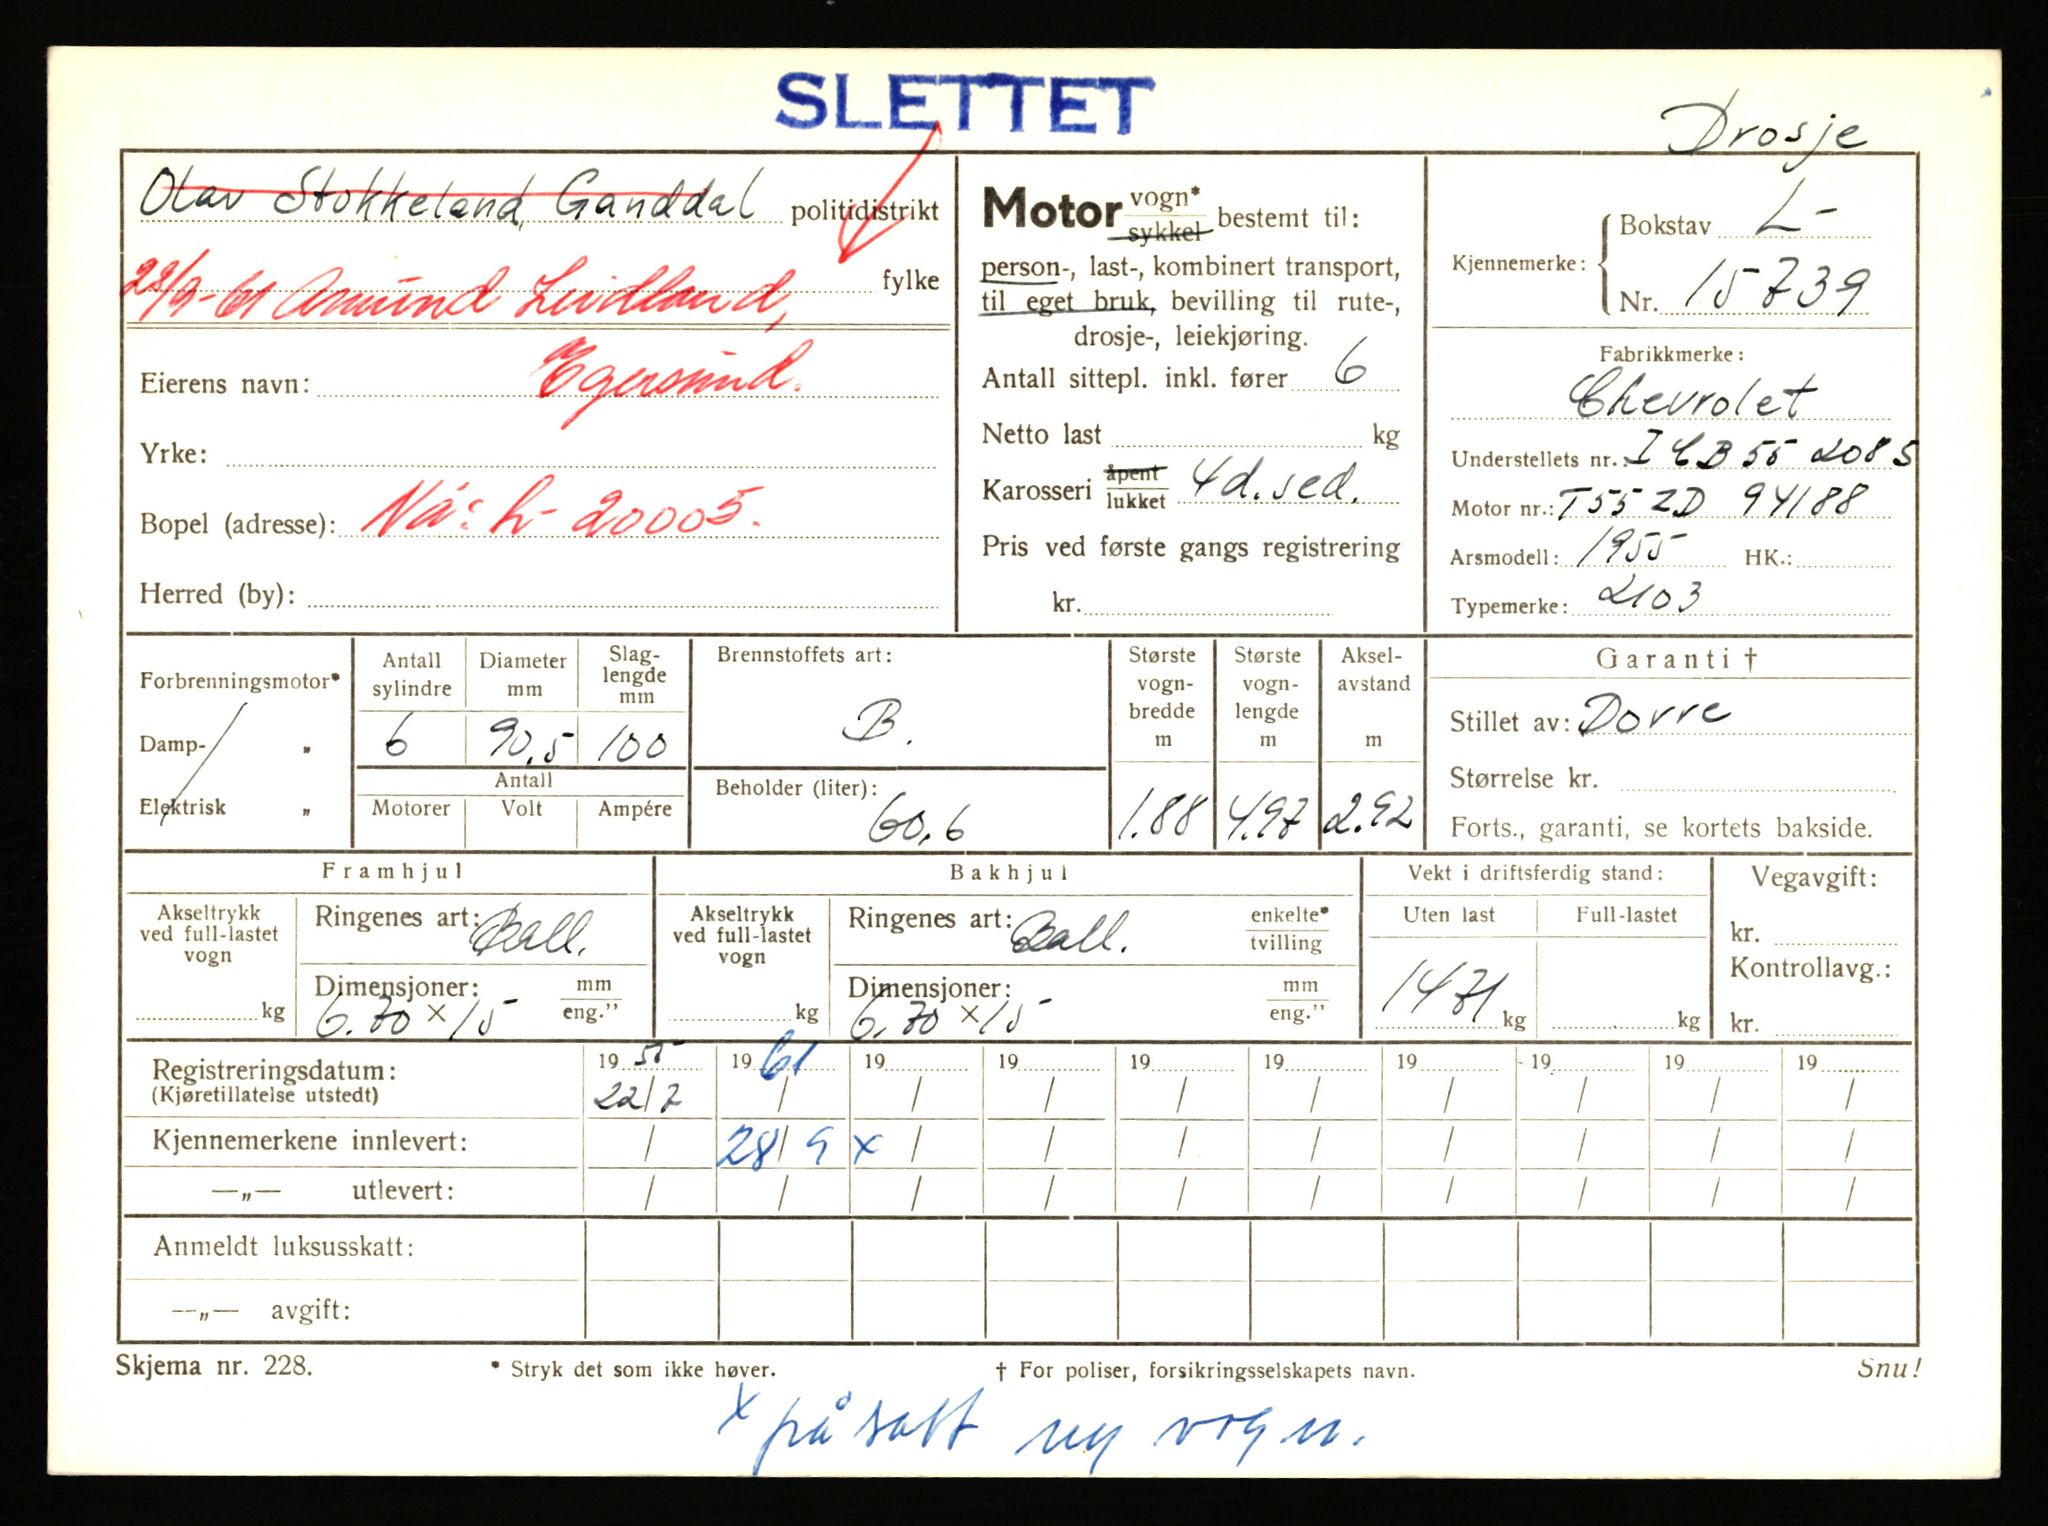 SLETTET
Drosje
Olav Stokkeland, Ganddal politidistrikt
28/9-61 Amund Leidland, fylke
Eierens navn: Egersund.
Yrke:
Bopel (adresse): Nå: L- 20005.
Herred (by):
Motor vogn* sykkel bestemt til:
person-, last-, kombinert transport,
til eget bruk, bevilling til rute-,
drosje-, leiekjøring.
Antall sittepl. inkl. fører 6
Netto last kg
Karosseri åpent lukket 4d. sed.
Pris ved første gangs registrering
kr.
Kjennemerke: Bokstav L-
Nr. 15739
Fabrikkmerke:
Chevrolet
Understellets nr.: I CB 55 2085
Motor nr.: T55 ZD 94188
Arsmodell: 1955 HK.:
Typemerke: 2103
Forbrenningsmotor*
Damp- „
Elektrisk „
Antall sylindre Diameter mm Slag-lengde mm
6 90,5 100
Antall
Motorer Volt Ampére
Brennstoffets art:
B.
Beholder (liter):
60,6
Største vogn-bredde m Største vogn-lengde m Aksel-avstand m
1.88 4.97 2.92
Garanti †
Stillet av: Dovre
Størrelse kr.
Forts., garanti, se kortets bakside.
Framhjul
Akseltrykk ved full-lastet vogn
kg
Ringenes art: Ball.
Dimensjoner: mm eng.”
6.70 × 15
Bakhjul
Akseltrykk ved full-lastet vogn
kg
Ringenes art: Ball. enkelte* tvilling
Dimensjoner: mm eng.”
6,70 × 15
Vekt i driftsferdig stand:
Uten last Full-lastet
1471 kg kg
Vegavgift:
kr.
Kontrollavg.:
kr.
Registreringsdatum: 19 55 19 61 19 19 19 19 19 19 19 19
(Kjøretillatelse utstedt) 22/7 / / / / / / / / /
Kjennemerkene innlevert: / 28/9 x / / / / / / / /
—„— utlevert: / / / / / / / / / /
Anmeldt luksusskatt:
—„— avgift:
Skjema nr. 228. * Stryk det som ikke høver. † For poliser, forsikringsselskapets navn. Snu!
x påsatt ny vogn.